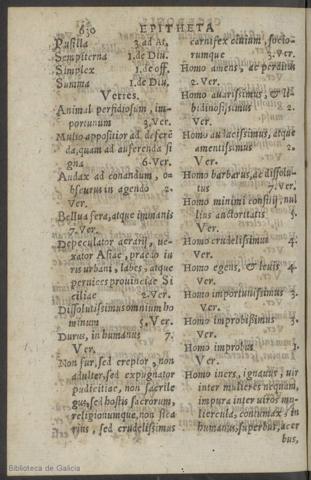 630 EPITHETA
Pusilla 3. ad At.
Sempiterna 1. de Diu.
Simplex 1. de off.
Summa 1. de Diu.
Verres.
Animal perfidiosum, im-
portunum 3. Ver.
Multo appositior ad deferē
da, quam ad auferenda si
gna 6. Ver.
Audax ad conandum, o-
bscurus in agendo 2.
Ver.
Bellua fera, atque immanis
7. Ver.
Depeculator aerarij, ue-
xator Asiae, praedo iu
ris urbani, labes, atque
pernicies prouinciae Si
ciliae 2. Ver.
Dissolutissimus omnium ho
minum 5. Ver.
Durus, in humanus 7.
Ver.
Non fur, sed ereptor, non
adulter, sed expugnator
pudicitiae, non sacrile
gus, sed hostis sacrorum,
religionumque, non sica
rius, sed crudelissimus
carnifex ciuium, socio-
rumque 3. Ver.
Homo amens, ac perditus
2. Ver.
Homo auarissimus, & li
bidinosissimus 2.
Ver.
Homo audacissimus, atque
amentissimus 2.
Ver.
Homo barbarus, ac dissolu-
tus 7. Ver.
Homo minimi consilij, nul
lius auctoritatis 3.
Ver.
Homo crudelissimus 4.
Ver.
Homo egens, & leuis 4.
Ver.
Homo importunissimus 3.
Ver.
Homo improbissimus 3.
Ver.
Homo improbus 1.
Ver.
Homo iners, ignauus, uir
inter mulieres nequam,
impura inter uiros mu-
liercula, contumax, in
humanus, superbus, acer
bus,
Biblioteca de Galicia